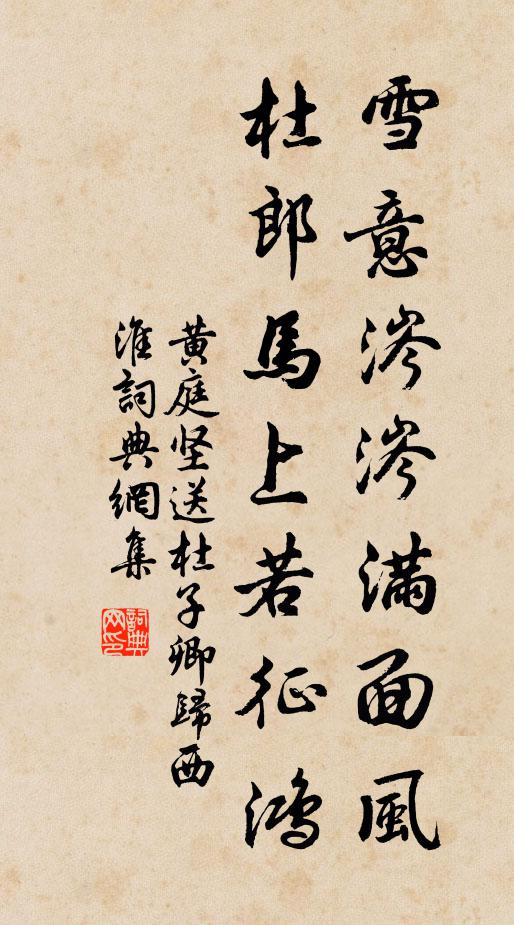 雪意涔涔满面風
杜郎馬上若征鴻
黄庭坚送杜子卿歸西
淮詞典網集
詞典網印